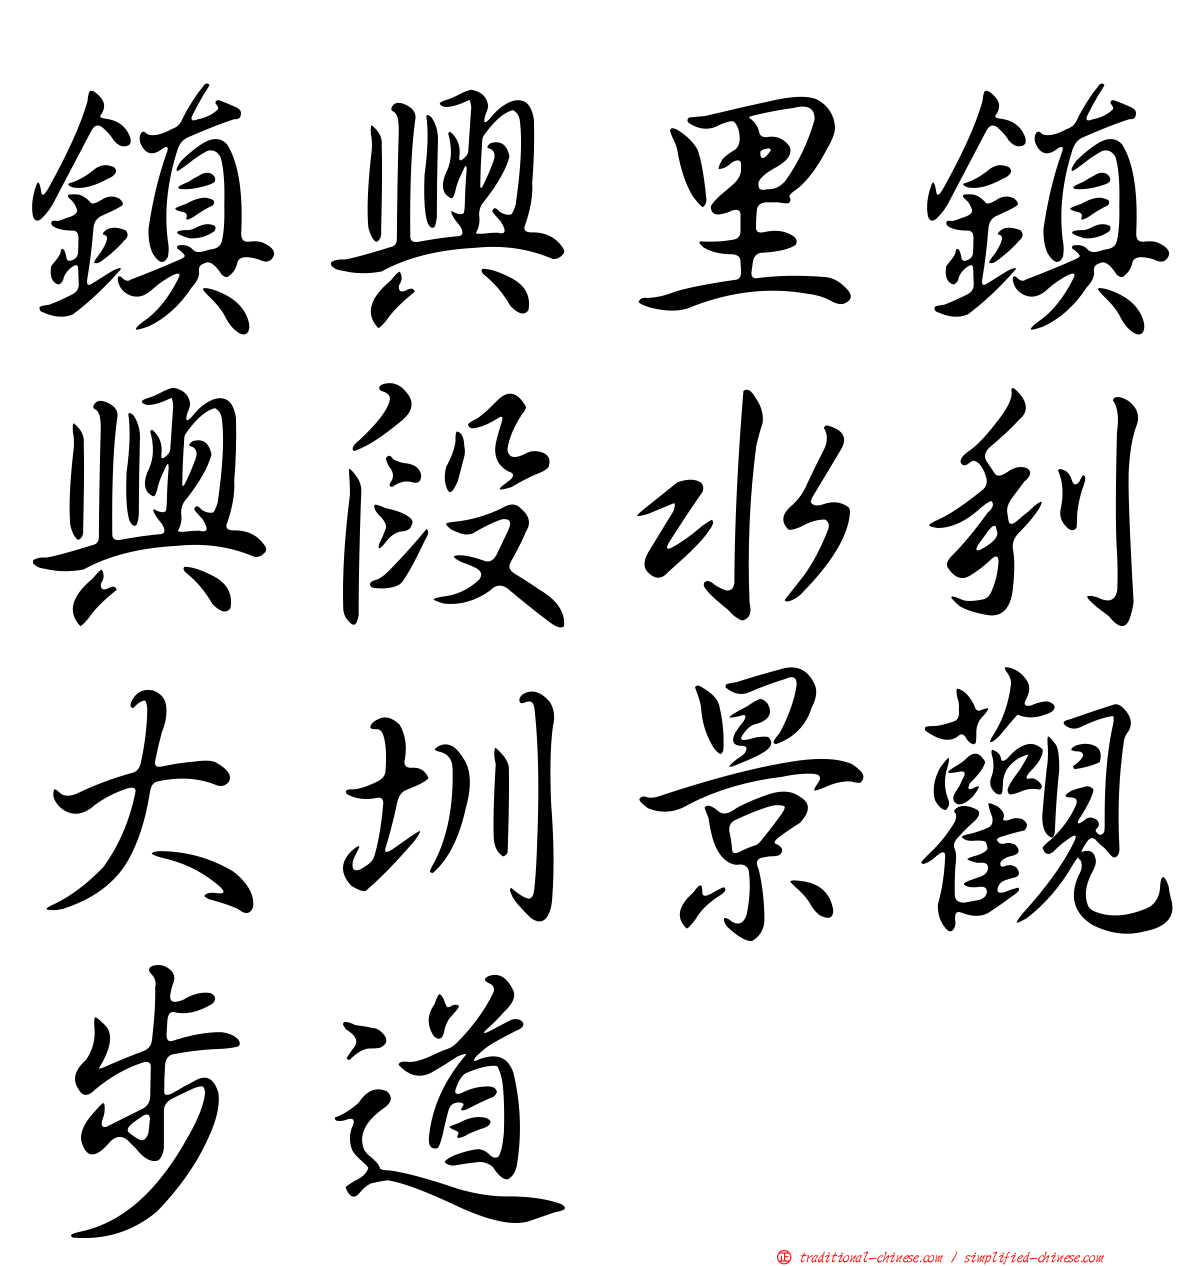 鎮興里鎮
興段水利
大圳景觀
步道
㊣ traditional-chinese.com / simplified-chinese.com